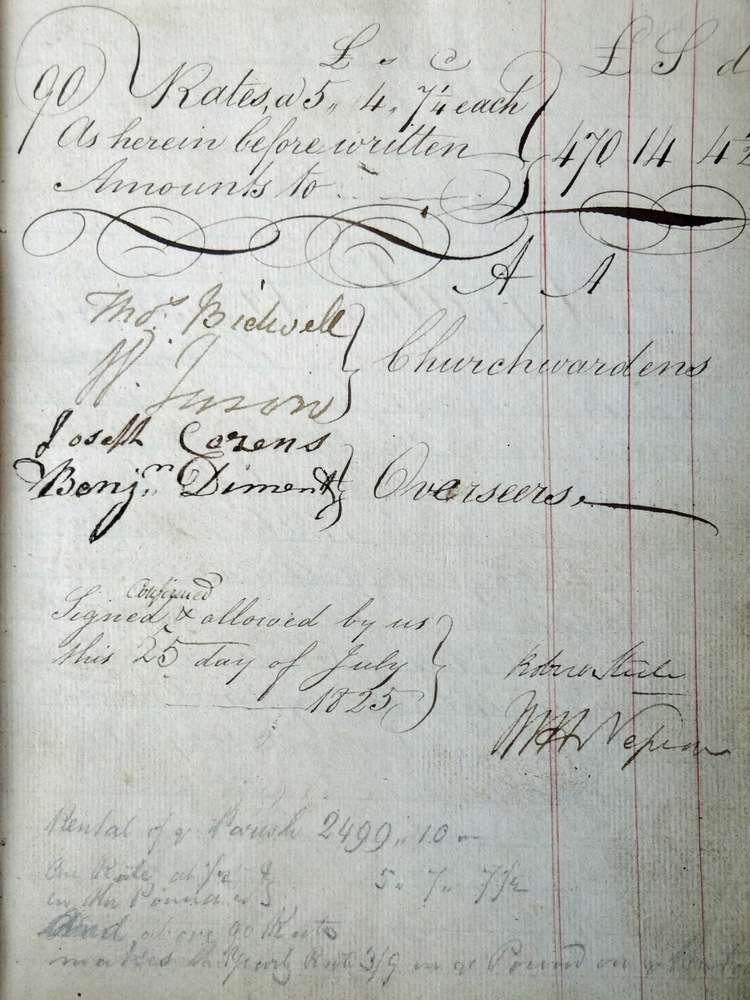 £ s d £ S d
90 Rates, a 5,, 4,, 7¼ each
As herein before written 470 14 4½
Amounts to
A A
Thos. Bidwell
W. Churchwardens
Joseph Corens
Benjn. Diment Overseers.
Confirmed
Signed & allowed by us
this 25 day of July
1825
Steele
Nepean
Rental of ye Parish 2499,, 10
One Rate at ½
in the Pound is 5,, 7,, 7½
And above 90 Rates
makes the Yearly Rate 3/9 in ye Pound on ye